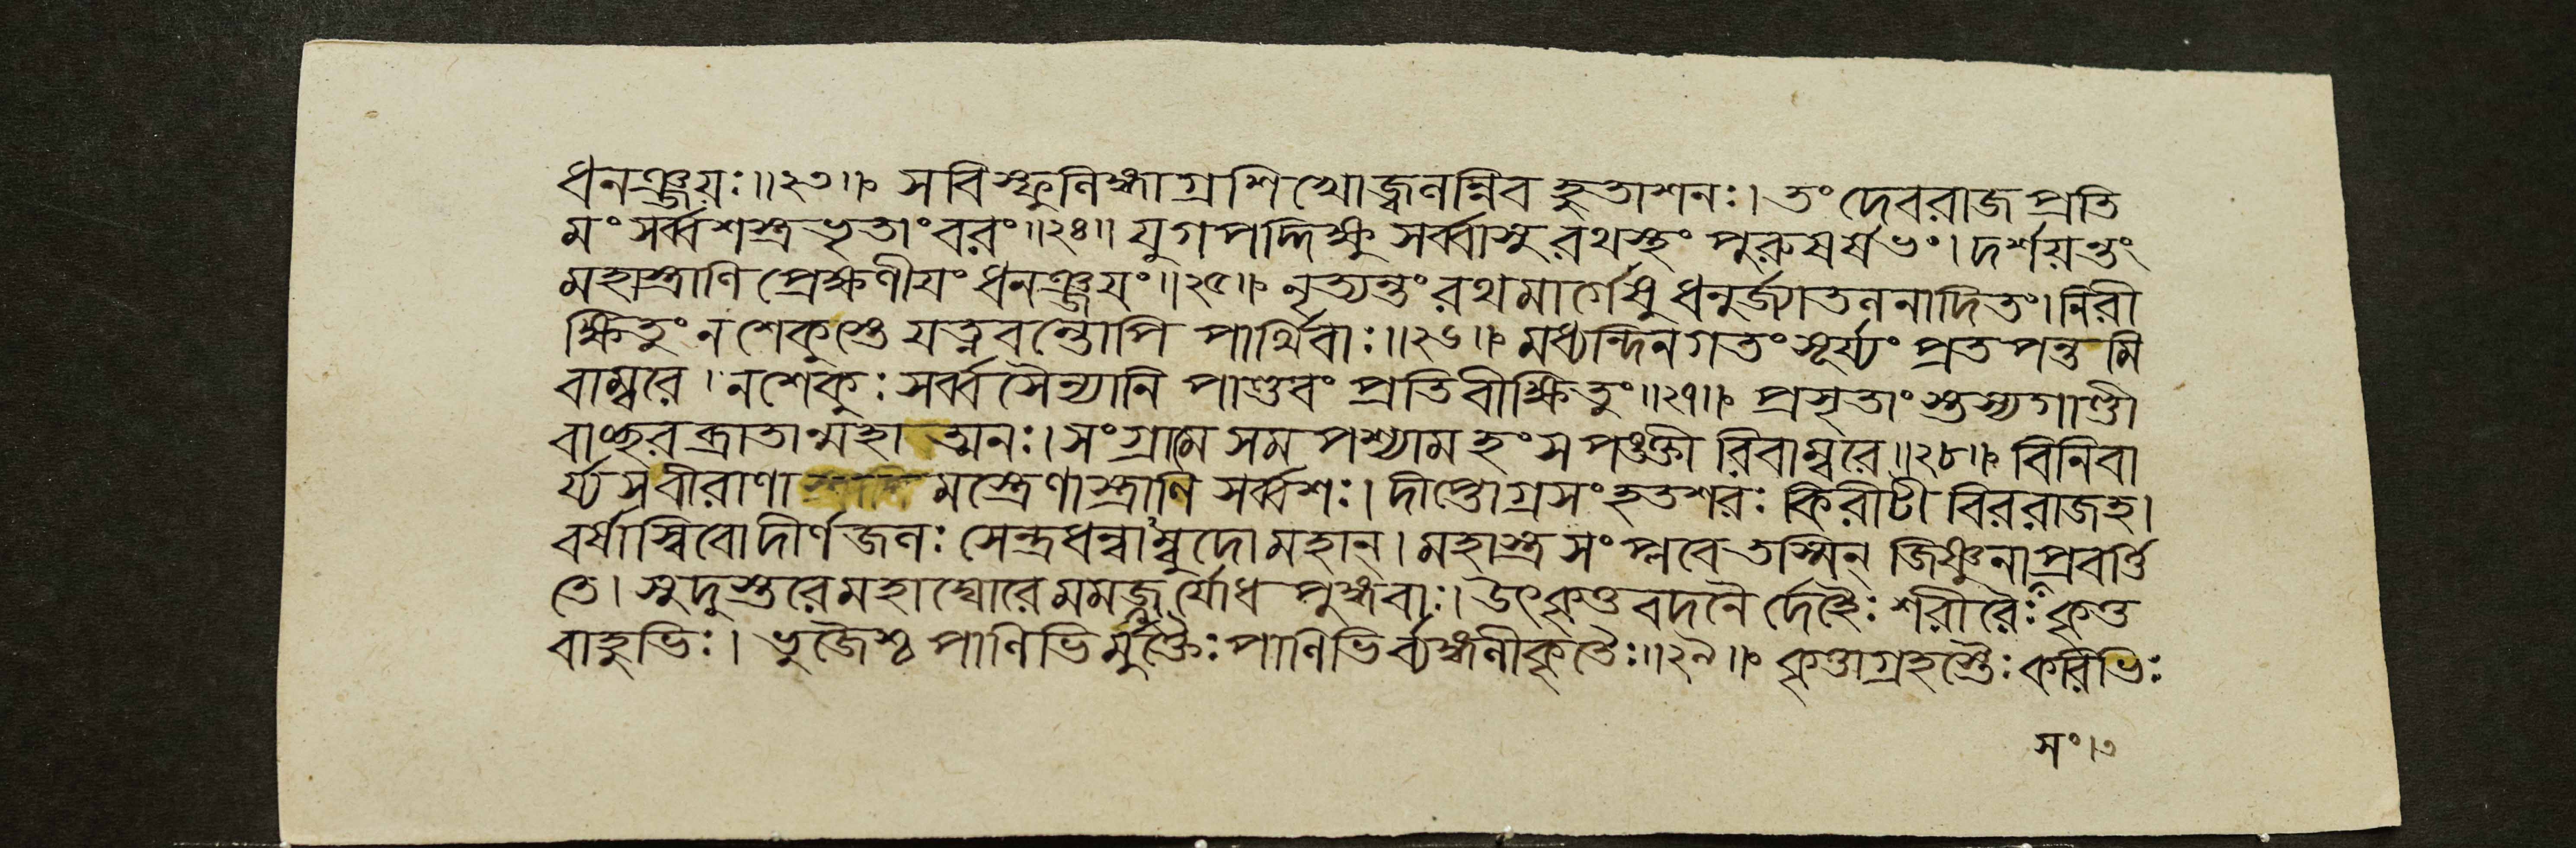 ধনঞ্জয়ঃ॥২৩॥ সবিস্ফুলিঙ্গাগ্রশিখোজ্বলন্নিব হুতাশনঃ। তং দেবরাজ প্রতি
মং সর্ব্বশস্ত্রভৃতাং বরং॥২৪॥ যুগপদ্দিক্ষু সর্ব্বাসু রথস্থং পুরুষর্ষভং। দর্শয়ন্তং
মহাস্ত্রাণি প্রেক্ষণীয়ং ধনঞ্জয়ং॥২৫॥ নৃত্যন্তং রথমার্গেষু ধনুর্জ্যাতলনাদিতং। নিরী
ক্ষিতুং ন শেকুস্তে যত্নবন্তোপি পার্থিবাঃ॥২৬॥ মধ্যন্দিনগতং সূর্য্যং প্রতপন্তমি
বাম্বরে। ন শেকুঃ সর্ব্বসৈন্যানি পাণ্ডবং প্রতিবীক্ষিতুং॥২৭॥ প্রসৃতাংস্তস্য গাণ্ডী
বাচ্ছরব্রাতান্মহাত্মনঃ। সংগ্রামে সমপশ্যাম হংসপঙ্ক্তীরিবাম্বরে॥২৮॥ বিনিবা
র্য্য স বীরাণা মস্ত্রেণাস্ত্রাণি সর্ব্বশঃ। দীপ্তোগ্রসংহতশরঃ কিরীটী বিররাজহ।
বর্ষাস্বিবোদীর্ণজলঃ সেন্দ্রধন্বাম্বুদো মহান্। মহাস্ত্রসংপ্লবে তস্মিন্ জিষ্ণুনা প্রবর্ত্তি
তে। সুদুস্তরে মহাঘোরে মমজ্জুর্যোধপুঙ্গবাঃ। উৎকৃত্তবদনৈর্দেহৈঃ শরীরৈঃ কৃত্ত
বাহুভিঃ। ভুজৈশ্চ পাণিভির্মুক্তৈঃ পাণিভির্ব্যঙ্গলীকৃতৈঃ॥২৯॥ কৃত্তাগ্রহস্তৈঃ করিভিঃ
সং।৩